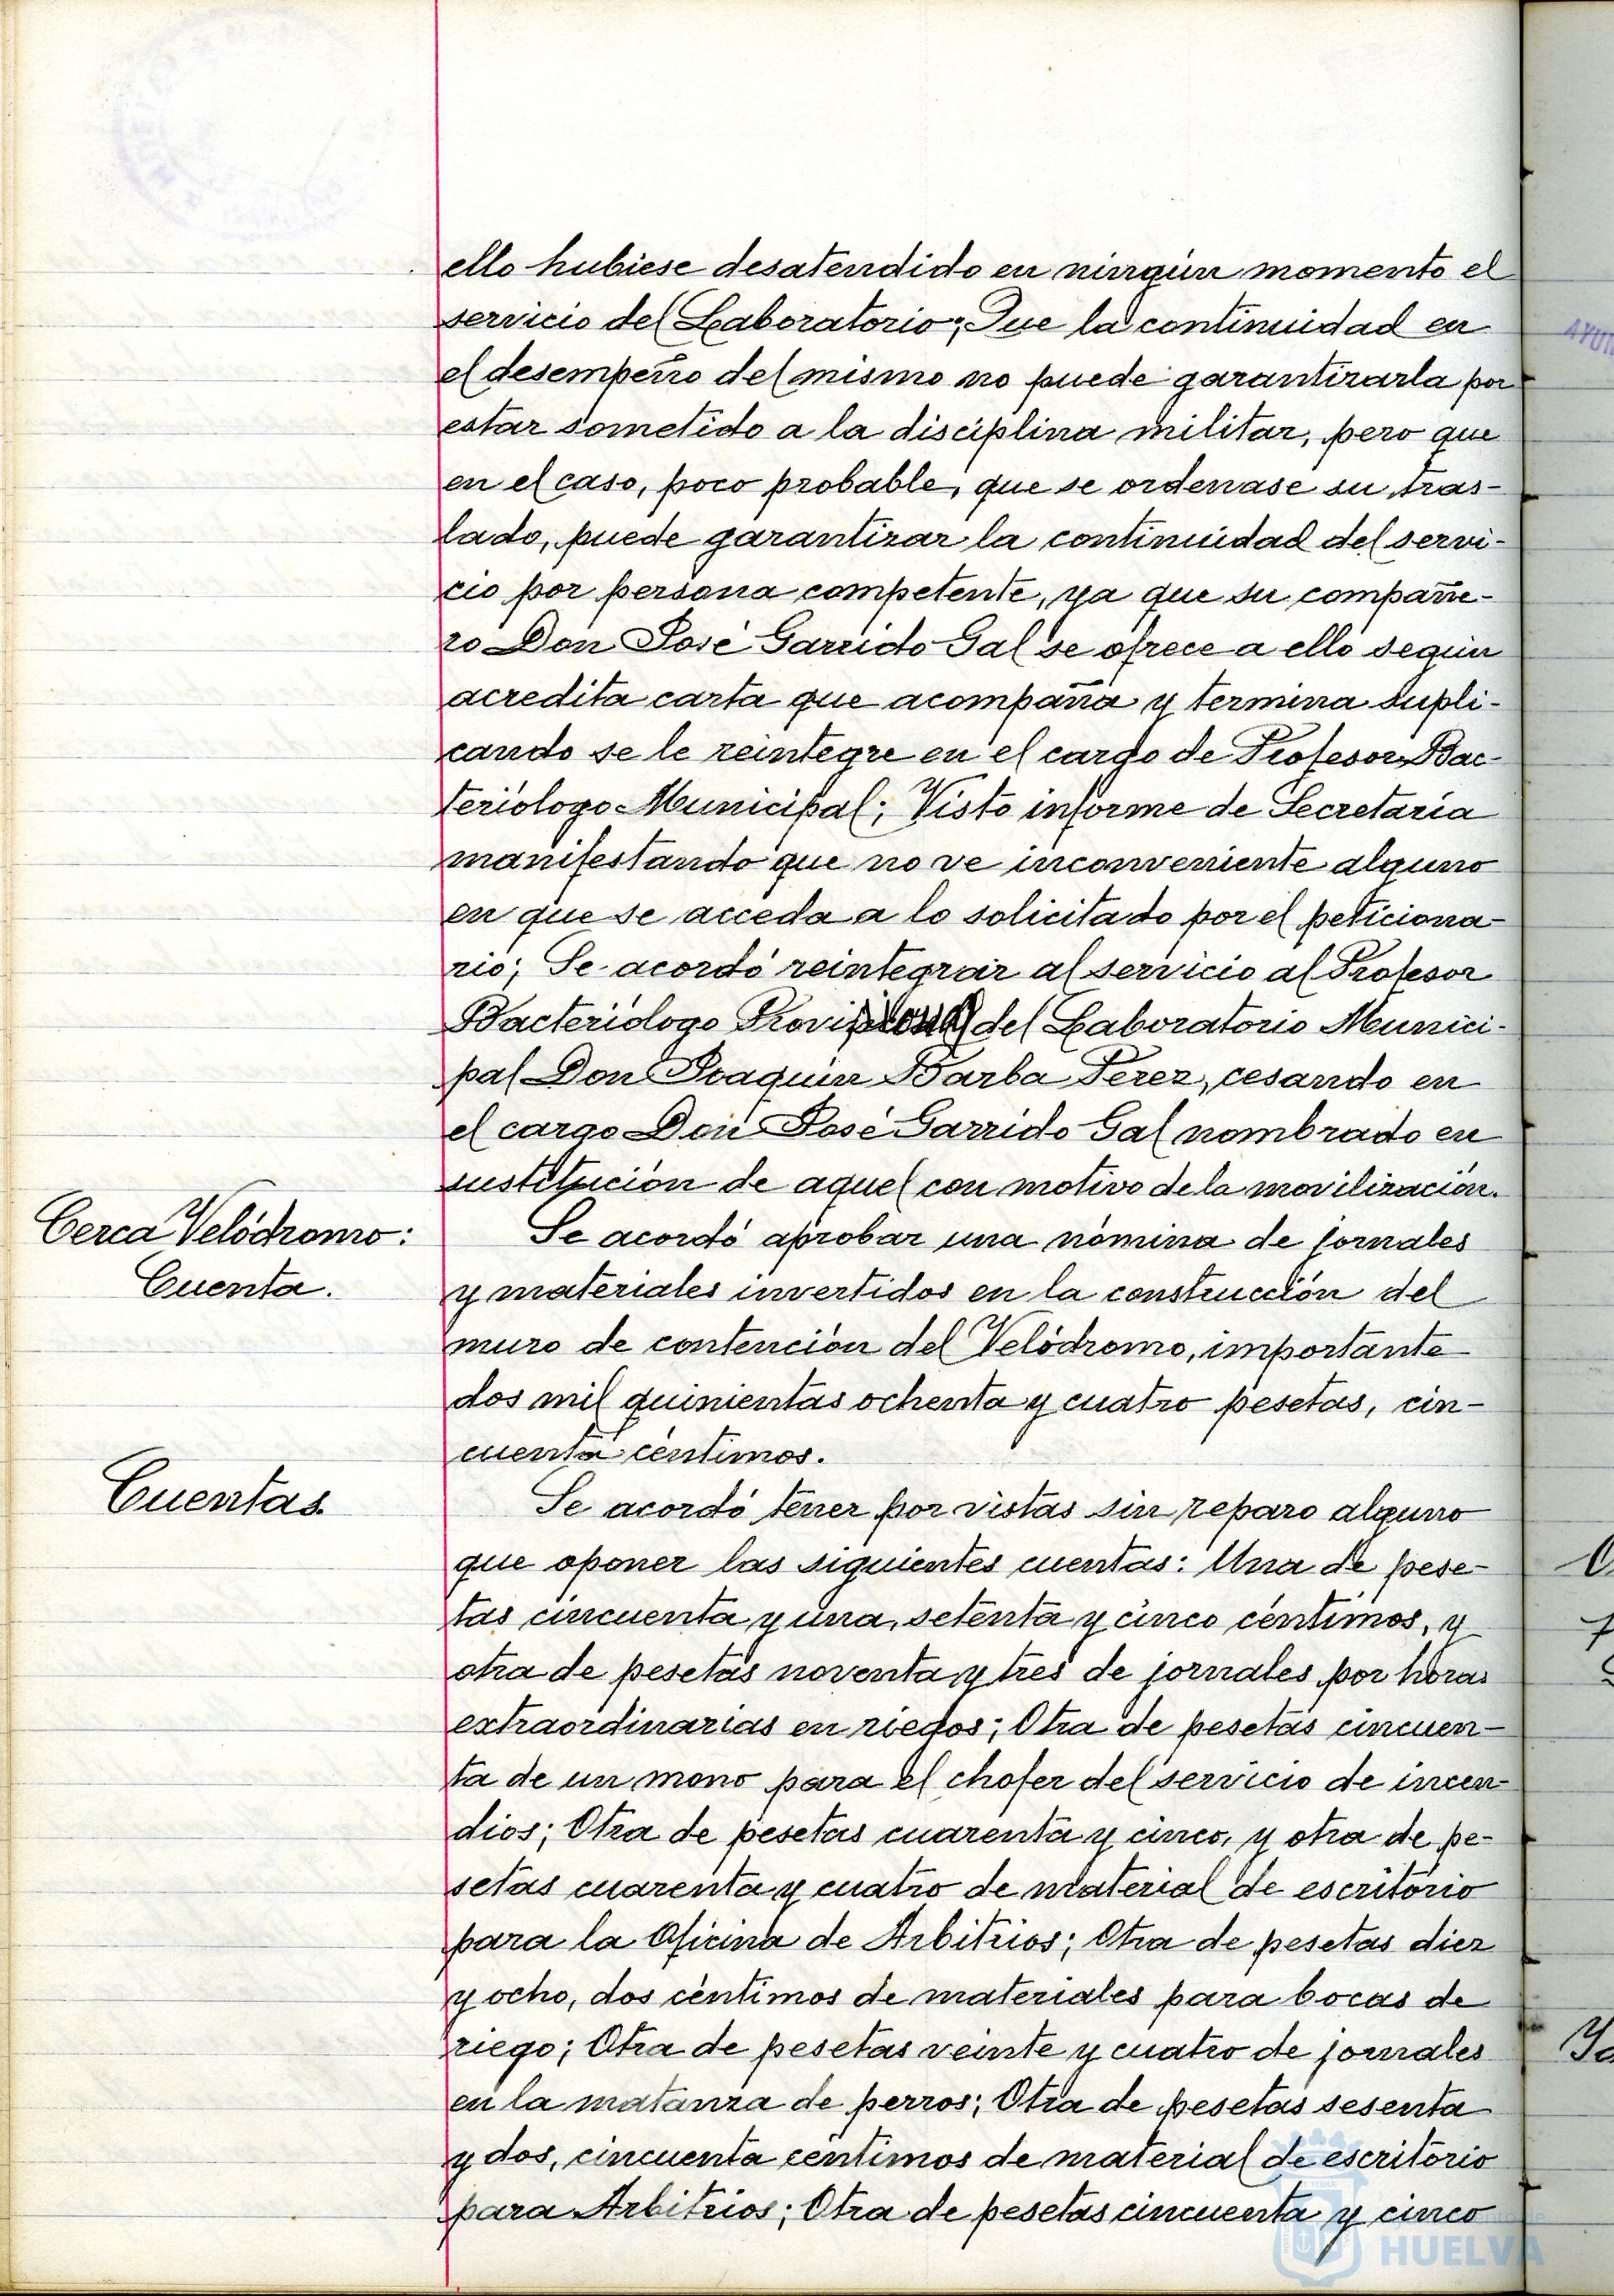 ello hubiese desatendido en ningún momento el
servicio del Laboratorio; Que la continuidad en
el desempeño del mismo no puede garantizarla por
estar sometido a la disciplina militar, pero que
en el caso, poco probable, que se ordenase su tras-
lado, puede garantizar la continuidad del servi-
cio por persona competente, ya que su compañe-
ro Don José Garrido Gal se ofrece a ello según
acredita carta que acompaña y termina supli-
cando se le reintegre en el cargo de Profesor Bac-
teriólogo Municipal; Visto informe de Secretaría
manifestando que no ve inconveniente alguno
en que se acceda a lo solicitado por el peticiona-
rio; Se acordó reintegrar al servicio al Profesor
Bacteriólogo Provisional del Laboratorio Munici-
pal Don Joaquín Barba Pérez, cesando en
el cargo Don José Garrido Gal nombrado en
sustitución de aquel con motivo de la movilización.
Cerca Velódromo:
Cuenta.
Se acordó aprobar una nómina de jornales
y materiales invertidos en la construcción del
muro de contención del Velódromo, importante
dos mil quinientas ochenta y cuatro pesetas, cin-
cuenta céntimos.
Cuentas.
Se acordó tener por vistas sin reparo alguno
que oponer las siguientes cuentas: Una de pese-
tas cincuenta y una, setenta y cinco céntimos, y
otra de pesetas noventa y tres de jornales por horas
extraordinarias en riegos; Otra de pesetas cincuen-
ta de un mono para el chofer del servicio de incen-
dios; Otra de pesetas cuarenta y cinco, y otra de pe-
setas cuarenta y cuatro de material de escritorio
para la Oficina de Arbitrios; Otra de pesetas diez
y ocho, dos céntimos de materiales para bocas de
riego; Otra de pesetas veinte y cuatro de jornales
en la matanza de perros; Otra de pesetas sesenta
y dos, cincuenta centimos de material de escritorio
para Arbitrios; Otra de pesetas cincuenta y cinco
HUELVA